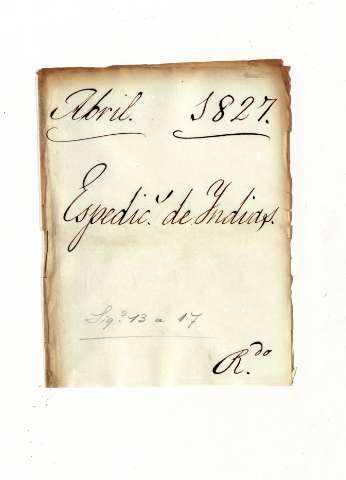 Abril. 1827.
Espedic.ⁿ de Yndias.
Sig.ª 13 a 17
R.do